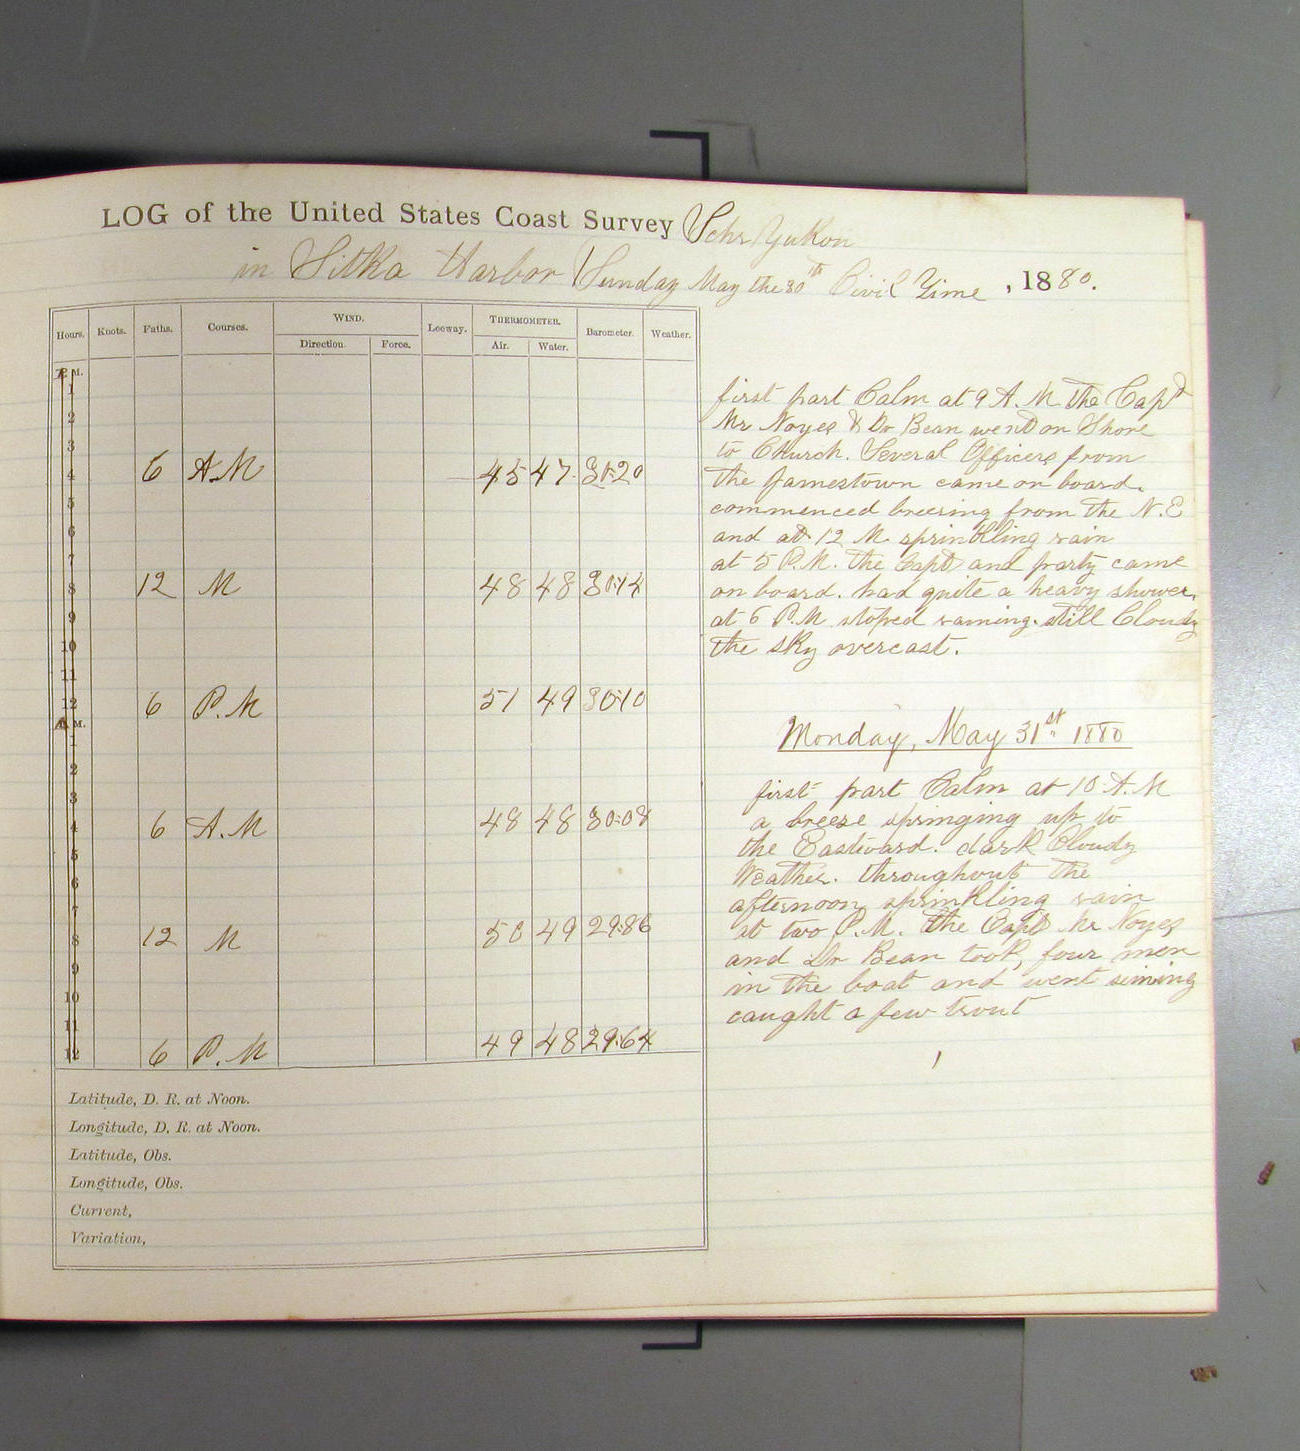 LOG of the United States Coast Survey Schr Yukon
in Sitka Harbor Sunday May the 30th Civil Time , 1880.
Hours. Knots. Faths. Courses. WIND. Leeway. THERMOMETER. Barometer. Weather.
Direction. Force. Air. Water.
M.
1
2
3
4 6 A.M 45 47 30.20
5
6
7
8 12 M 48 48 30.14
9
10
11
12 6 P.M 51 49 30.10
M.
1
2
3
4 6 A.M 48 48 30.08
5
6
7
8 12 M 50 49 29.86
9
10
11
12 6 P.M 49 48 29.64
Latitude, D. R. at Noon.
Longitude, D. R. at Noon.
Latitude, Obs.
Longitude, Obs.
Current,
Variation,
first part Calm at 9 A.M the Capt
Mr Noyes & Dr Bean went on Shore
to Church. Several Officers from
the Jamestown came on board.
commenced breesing from the N.E
and at 12 M sprinkling rain
at 5 P.M. the Capt and party came
on board. had quite a heavy shower.
at 6 P.M stoped raining. still Cloudy
the sky overcast.
Monday, May 31st 1880
first part Calm at 10 A.M
a breese springing up to
the Eastward. dark Cloudy
Weather. throughout the
afternoon sprinkling rain
at two P.M. the Capt Mr Noyes
and Dr Bean took four men
in the boat and went seining
caught a few trout